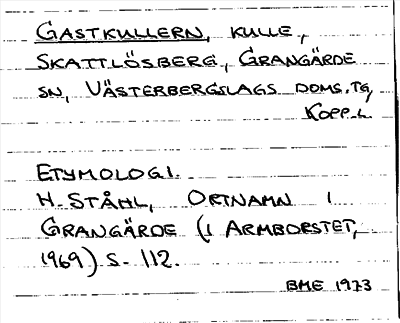 GASTKULLERN, KULLE,
SKATTLÖSBERG, GRANGÄRDE
SN, VÄSTERBERGSLAGS DOMS.TG,
KOPP.L.
ETYMOLOGI.
H. STÅHL, ORTNAMN I
GRANGÄRDE (I ARMBORSTET,
1969) S. 112.
BME 1973